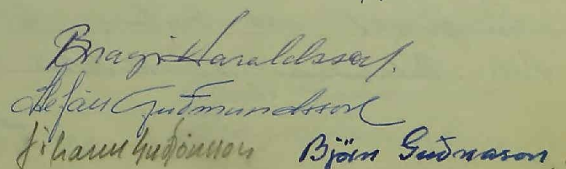 Bragi Haraldsson.
Stefán Guðmundsson
Jóhann Guðjónsson Björn Guðnason